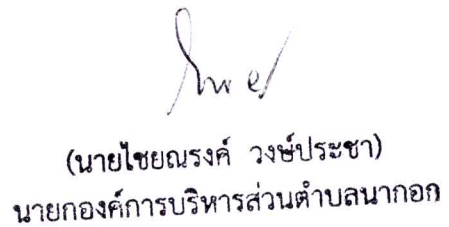 (นายไชยณรงค์ วงษ์ประชา)
นายกองค์การบริหารส่วนตำบลนากอก